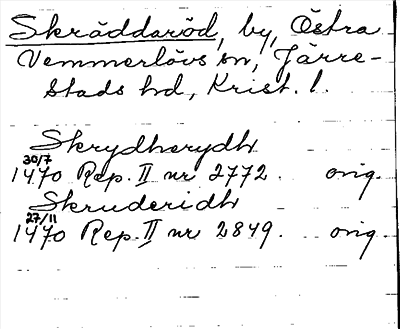 Skräddaröd, by, Östra
Vemmerlövs sn, Järre-
stads hd, Krist. l.
Skrydherydh
30/7
1470 Rep. II nr 2772. orig.
Skruderidh
27/11
1470 Rep. II nr 2849. orig.